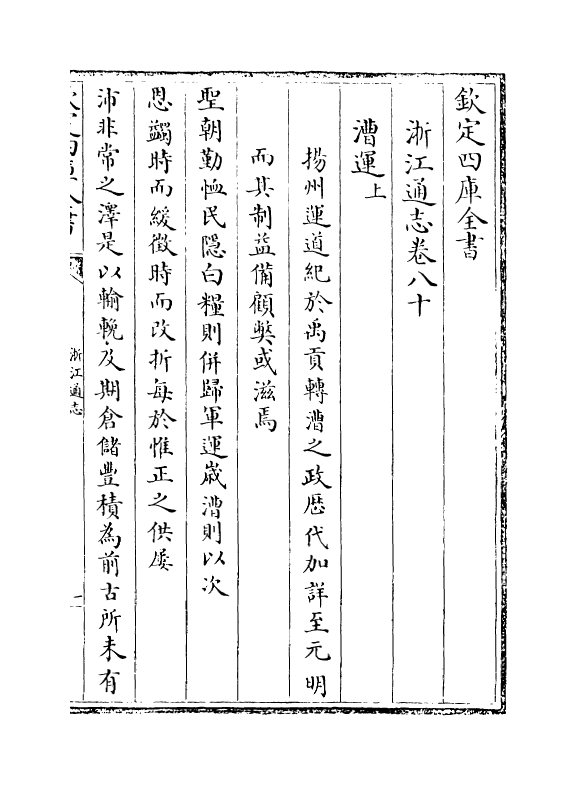 欽定四庫全書
浙江通志卷八十
漕運上
揚州運道紀於禹貢轉漕之政歴代加詳至元明
而其制益備顧弊或滋焉
聖朝勤恤民隱白糧則併歸軍運嵗漕則以次
恩蠲時而緩徴時而改折每於惟正之供屡
沛非常之澤是以輸輓及期倉儲豐積為前古所未有
浙江通志